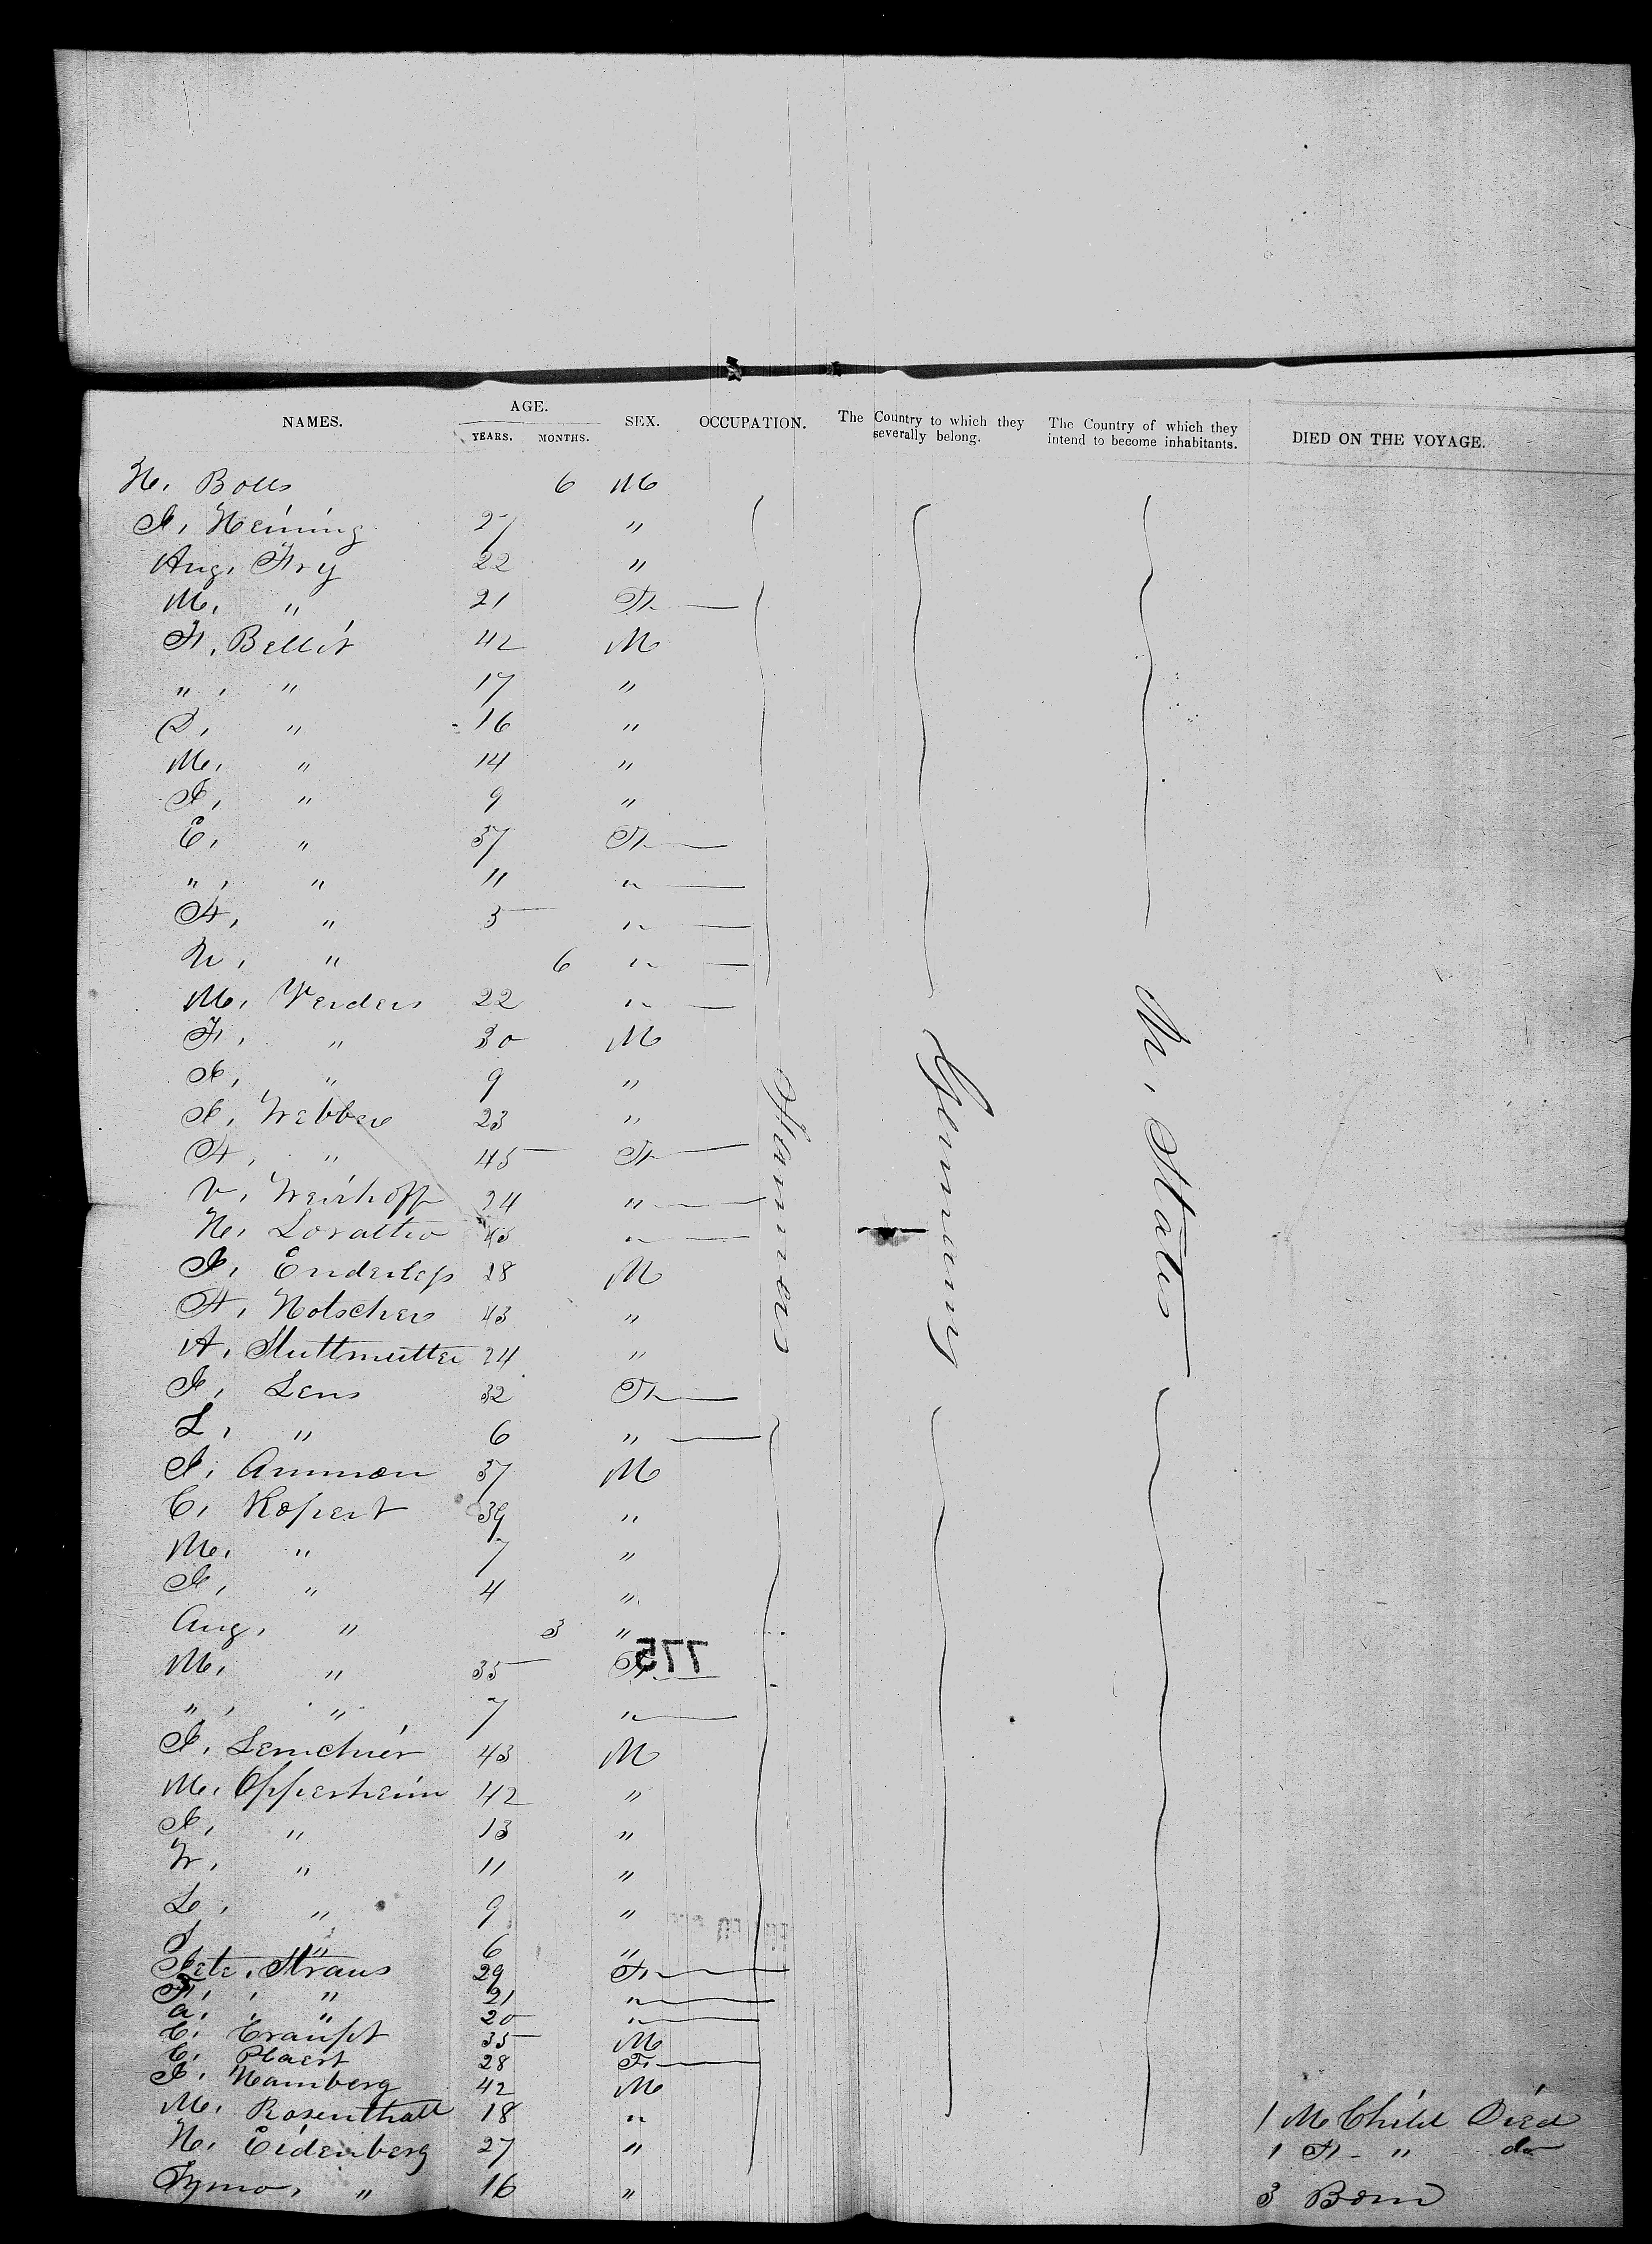 NAMES. AGE. SEX. OCCUPATION. The Country to which they severally belong. The Country of which they intend to become inhabitants. DIED ON THE VOYAGE.
YEARS. MONTHS.
H. Bolls 6 M
J. Heining 27 "
Aug. Fry 22 "
M. " 21 F
F. Bellit 42 M
" , " 17 "
" 16 "
M. " 14 "
J. " 9 "
E. " 37 F
" , " 11 "
F. " 5 "
N. " 6 "
M. Verders 22 "
F. " 30 M
J. " 9 "
J. Webber 23 "
F. " 45 F
V. Weirhoff 24 "
H. "
J. 28 M
F. Holscher 43 "
A. 24 "
J. Lens 32 F
L. " 6 "
J. Ammon 37 M
C. Kopert 39 "
M. " 7 "
J. " 4 "
Aug. " 3 "
M. " 35 F
" , " 7 "
J. 43 M
M. Oppenheim 42 "
J. " 13 "
W. " 11 "
L. " 9 "
" 6 "
Straus 29 F
F. , " 21 "
A. , " 20 "
C. 35 M
C. Plaert 28 F
J. Hamberg 42 M
M. Rosenthall 18 "
H. Eidenberg 27 "
" 16 "
Farmers
Germany
N. States
775
1 M Child Died
1 F " do
3 Born